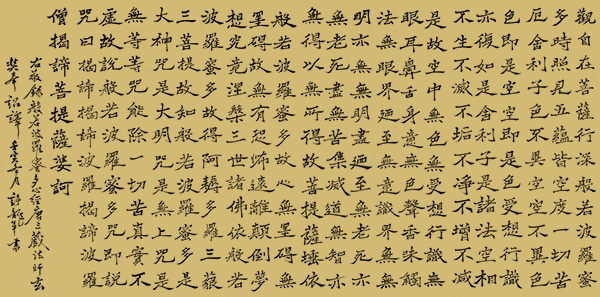 觀自在菩薩行深般若波羅蜜
多時照見五蘊皆空度一切苦
厄舍利子色不異空空不異色
色即是空空即是色受想行識
亦復如是舍利子是諸法空相
不生不滅不垢不淨不增不減
是故空中無色無受想行識無
眼耳鼻舌身意無色聲香味觸
法無眼界迺至無意識界無無
明亦無無明盡迺至無老死亦
無老死盡無苦集滅道無智亦
無得以無所得故菩提薩埵依
般若波羅蜜多故心無罣礙無
罣礙故無有恐怖遠離顛倒夢
想究竟涅槃三世諸佛依般若
波羅蜜多故得阿耨多羅三藐
三菩提故知般若波羅蜜多是
大神咒是大明咒是無上咒是
無等等咒能除一切苦真實不
虛故說般若波羅蜜多咒即說
咒曰揭諦揭諦波羅揭諦波羅
僧揭諦菩提薩婆訶
右敬錄般若波羅蜜多心經唐三藏法師玄
奘奉詔譯 月 書